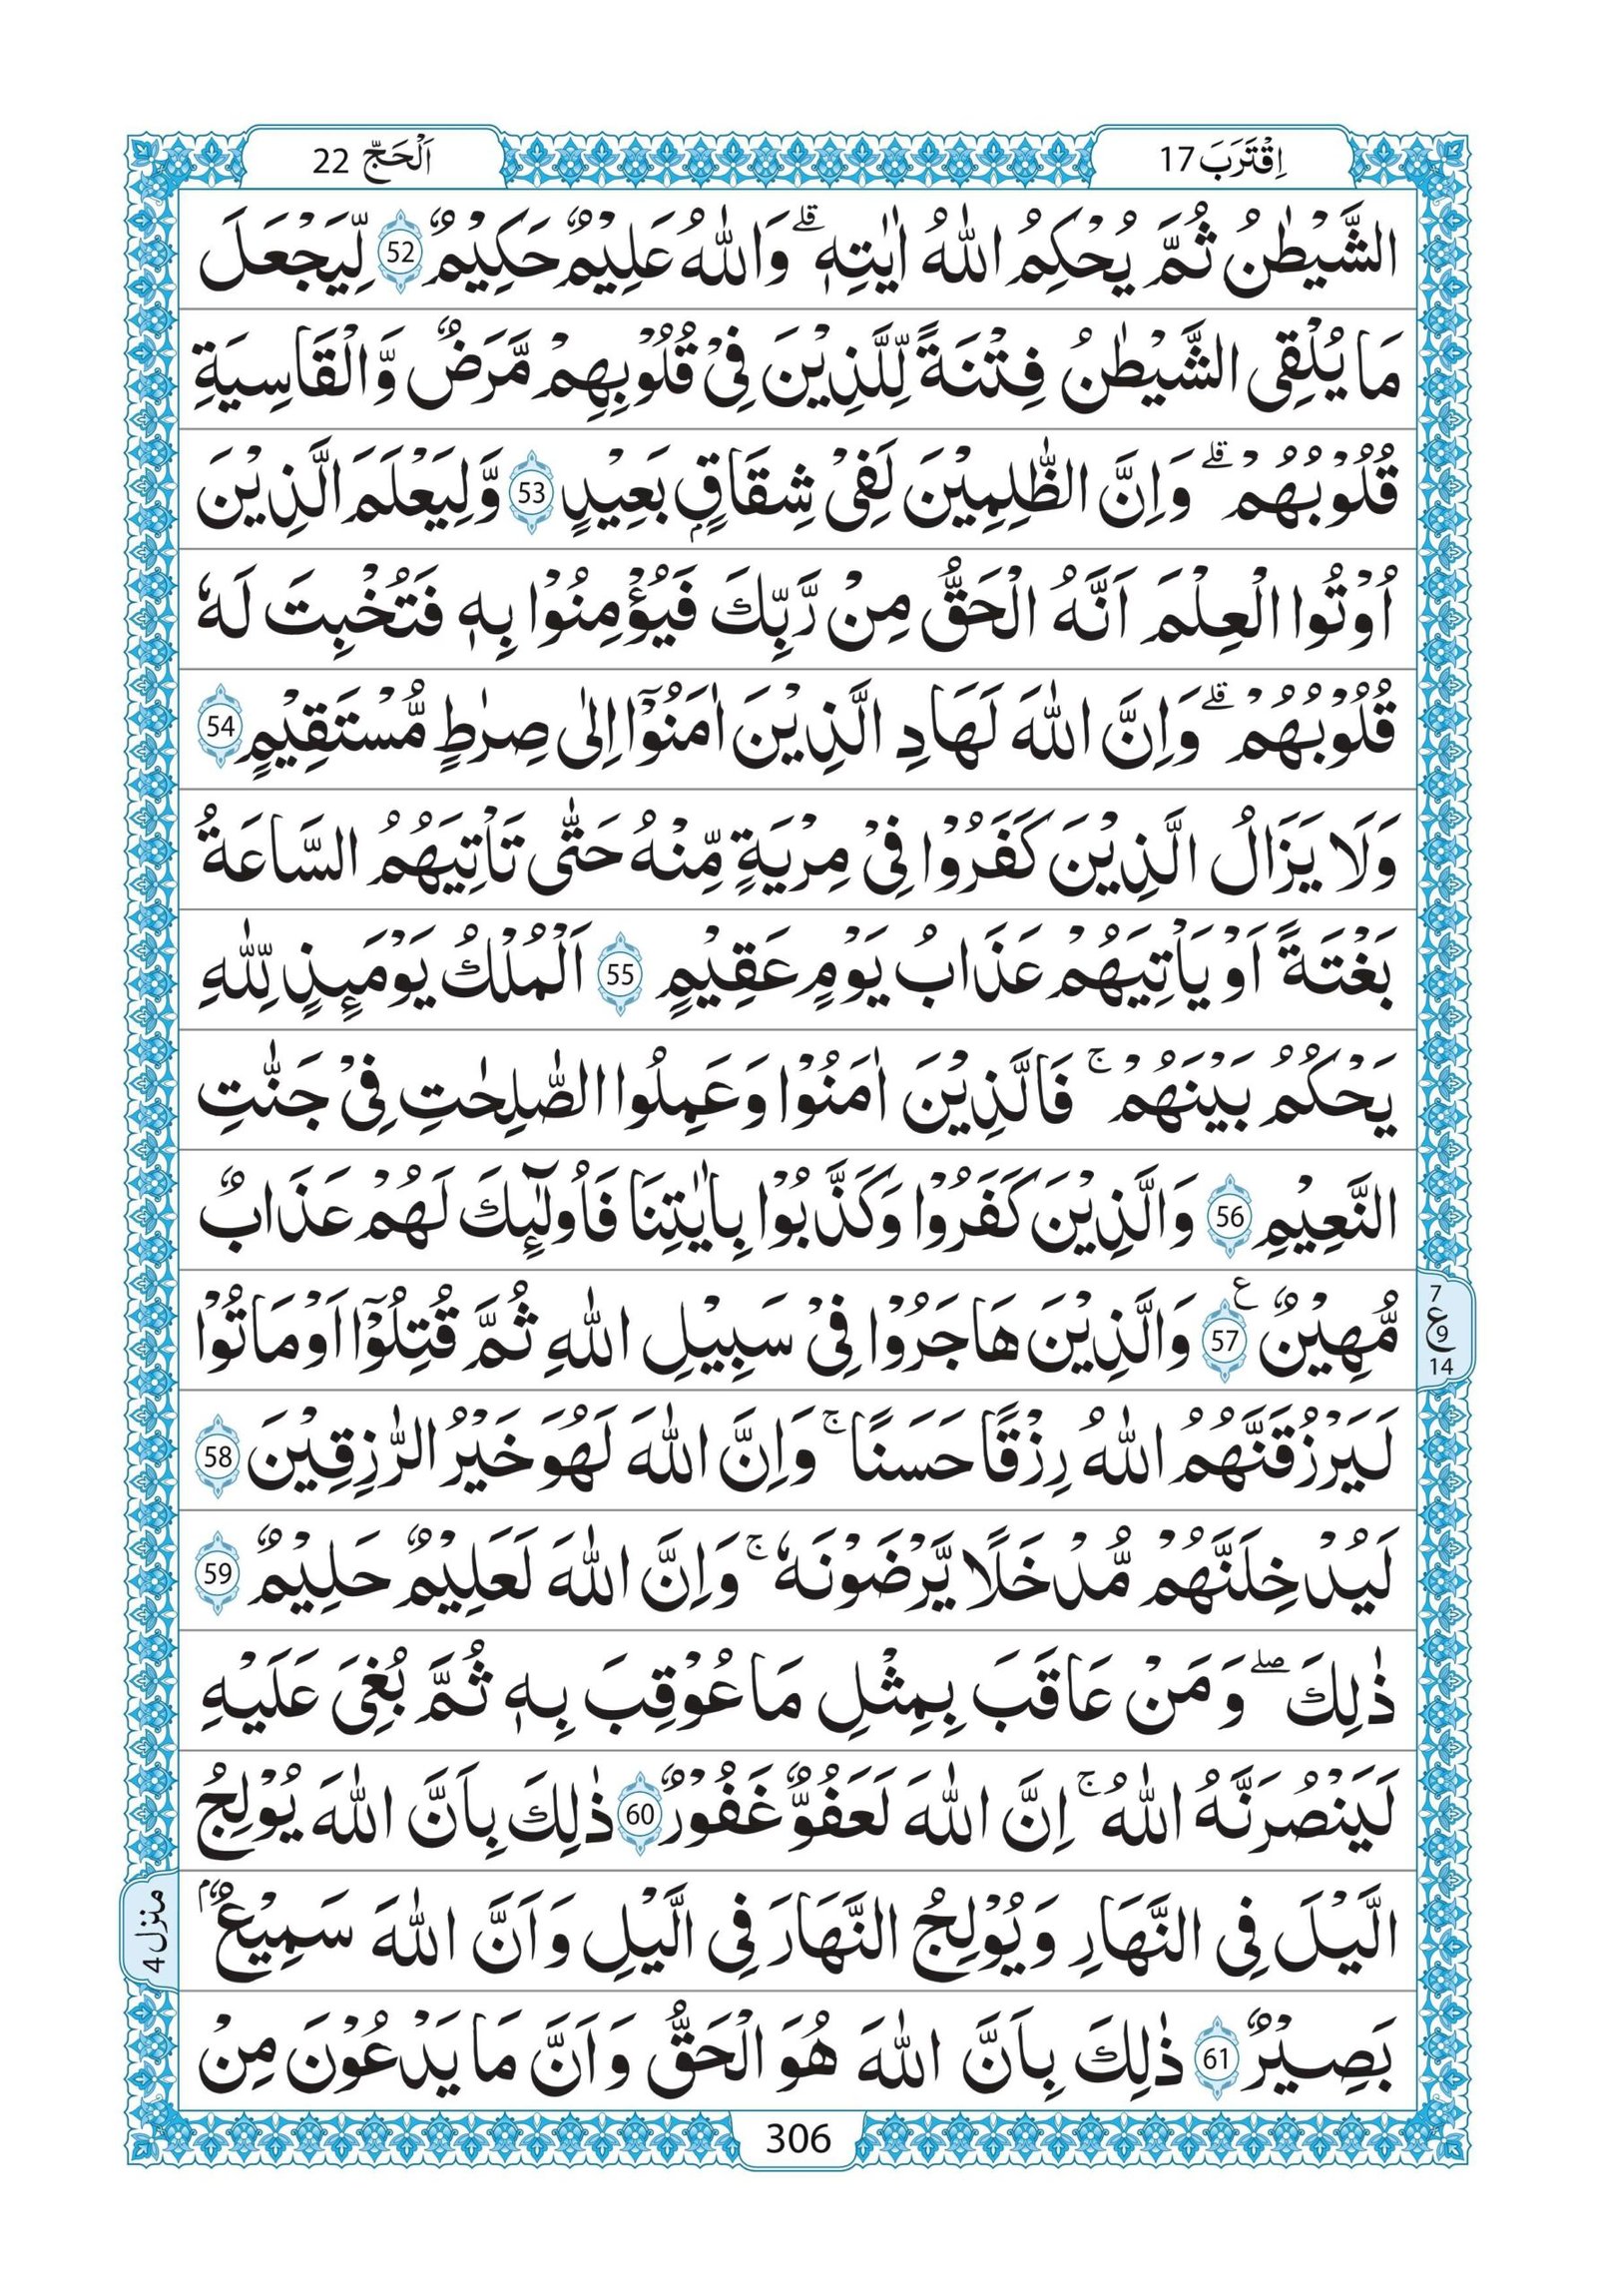 اِقْتَرَبَ 17
اَلْحَجّ 22
الشَّيْطٰنُ ثُمَّ يُحْكِمُ اللّٰهُ اٰيٰتِهٖ ؕ وَاللّٰهُ عَلِيْمٌ حَكِيْمٌ 52 لِّيَجْعَلَ
مَا يُلْقِى الشَّيْطٰنُ فِتْنَةً لِّلَّذِيْنَ فِىْ قُلُوْبِهِمْ مَّرَضٌ وَّالْقَاسِيَةِ
قُلُوْبُهُمْ ۗ وَاِنَّ الظّٰلِمِيْنَ لَفِىْ شِقَاقٍۭ بَعِيْدٍ 53 وَّلِيَعْلَمَ الَّذِيْنَ
اُوْتُوا الْعِلْمَ اَنَّهُ الْحَقُّ مِنْ رَّبِّكَ فَيُؤْمِنُوْا بِهٖ فَتُخْبِتَ لَهٗ
قُلُوْبُهُمْ ۗ وَاِنَّ اللّٰهَ لَهَادِ الَّذِيْنَ اٰمَنُوْٓا اِلٰى صِرٰطٍ مُّسْتَقِيْمٍ 54
وَلَا يَزَالُ الَّذِيْنَ كَفَرُوْا فِىْ مِرْيَةٍ مِّنْهُ حَتّٰى تَاْتِيَهُمُ السَّاعَةُ
بَغْتَةً اَوْ يَاْتِيَهُمْ عَذَابُ يَوْمٍ عَقِيْمٍ 55 اَلْمُلْكُ يَوْمَىِٕذٍ لِّلّٰهِ
يَحْكُمُ بَيْنَهُمْ ۚ فَالَّذِيْنَ اٰمَنُوْا وَعَمِلُوا الصّٰلِحٰتِ فِىْ جَنّٰتِ
النَّعِيْمِ 56 وَالَّذِيْنَ كَفَرُوْا وَكَذَّبُوْا بِاٰيٰتِنَا فَاُولٰٓىِٕكَ لَهُمْ عَذَابٌ
مُّهِيْنٌ ع 57 وَالَّذِيْنَ هَاجَرُوْا فِىْ سَبِيْلِ اللّٰهِ ثُمَّ قُتِلُوْٓا اَوْ مَاتُوْا
7
ع 9
14
لَيَرْزُقَنَّهُمُ اللّٰهُ رِزْقًا حَسَنًا ۚ وَاِنَّ اللّٰهَ لَهُوَ خَيْرُ الرّٰزِقِيْنَ 58
لَيُدْخِلَنَّهُمْ مُّدْخَلًا يَّرْضَوْنَهٗ ۚ وَاِنَّ اللّٰهَ لَعَلِيْمٌ حَلِيْمٌ 59
ذٰلِكَ ۖ وَمَنْ عَاقَبَ بِمِثْلِ مَا عُوْقِبَ بِهٖ ثُمَّ بُغِىَ عَلَيْهِ
لَيَنْصُرَنَّهُ اللّٰهُ ۚ اِنَّ اللّٰهَ لَعَفُوٌّ غَفُوْرٌ 60 ذٰلِكَ بِاَنَّ اللّٰهَ يُوْلِجُ
الَّيْلَ فِى النَّهَارِ وَيُوْلِجُ النَّهَارَ فِى الَّيْلِ وَاَنَّ اللّٰهَ سَمِيْعٌۢ
منزل 4
بَصِيْرٌ 61 ذٰلِكَ بِاَنَّ اللّٰهَ هُوَ الْحَقُّ وَاَنَّ مَا يَدْعُوْنَ مِنْ
306